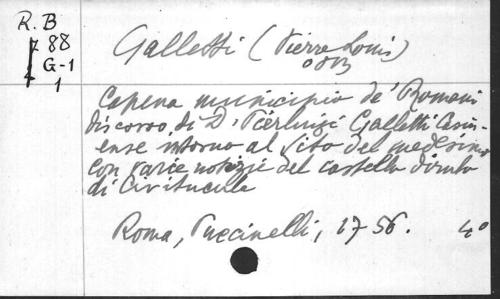 R. B
Galletti (Pierre Louis)
88
OSB
G-1
1
Capena municipio de' Romani
discorso di D. Pierluigi Galletti Casin-
ense intorno al sito del medesimo
con varie notizie del castello diruto
di Civitucula
Roma, Puccinelli, 1756. 4°